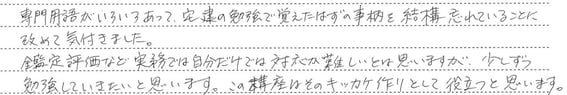 専門用語がいろいろあって、宅建の勉強で覚えたはずの事柄を結構忘れていることに
改めて気付きました。
鑑定評価など実務では自分だけでは対応が難しいとは思いますが、少しずつ
勉強していきたいと思います。この講座はそのキッカケ作りとして役立つと思います。